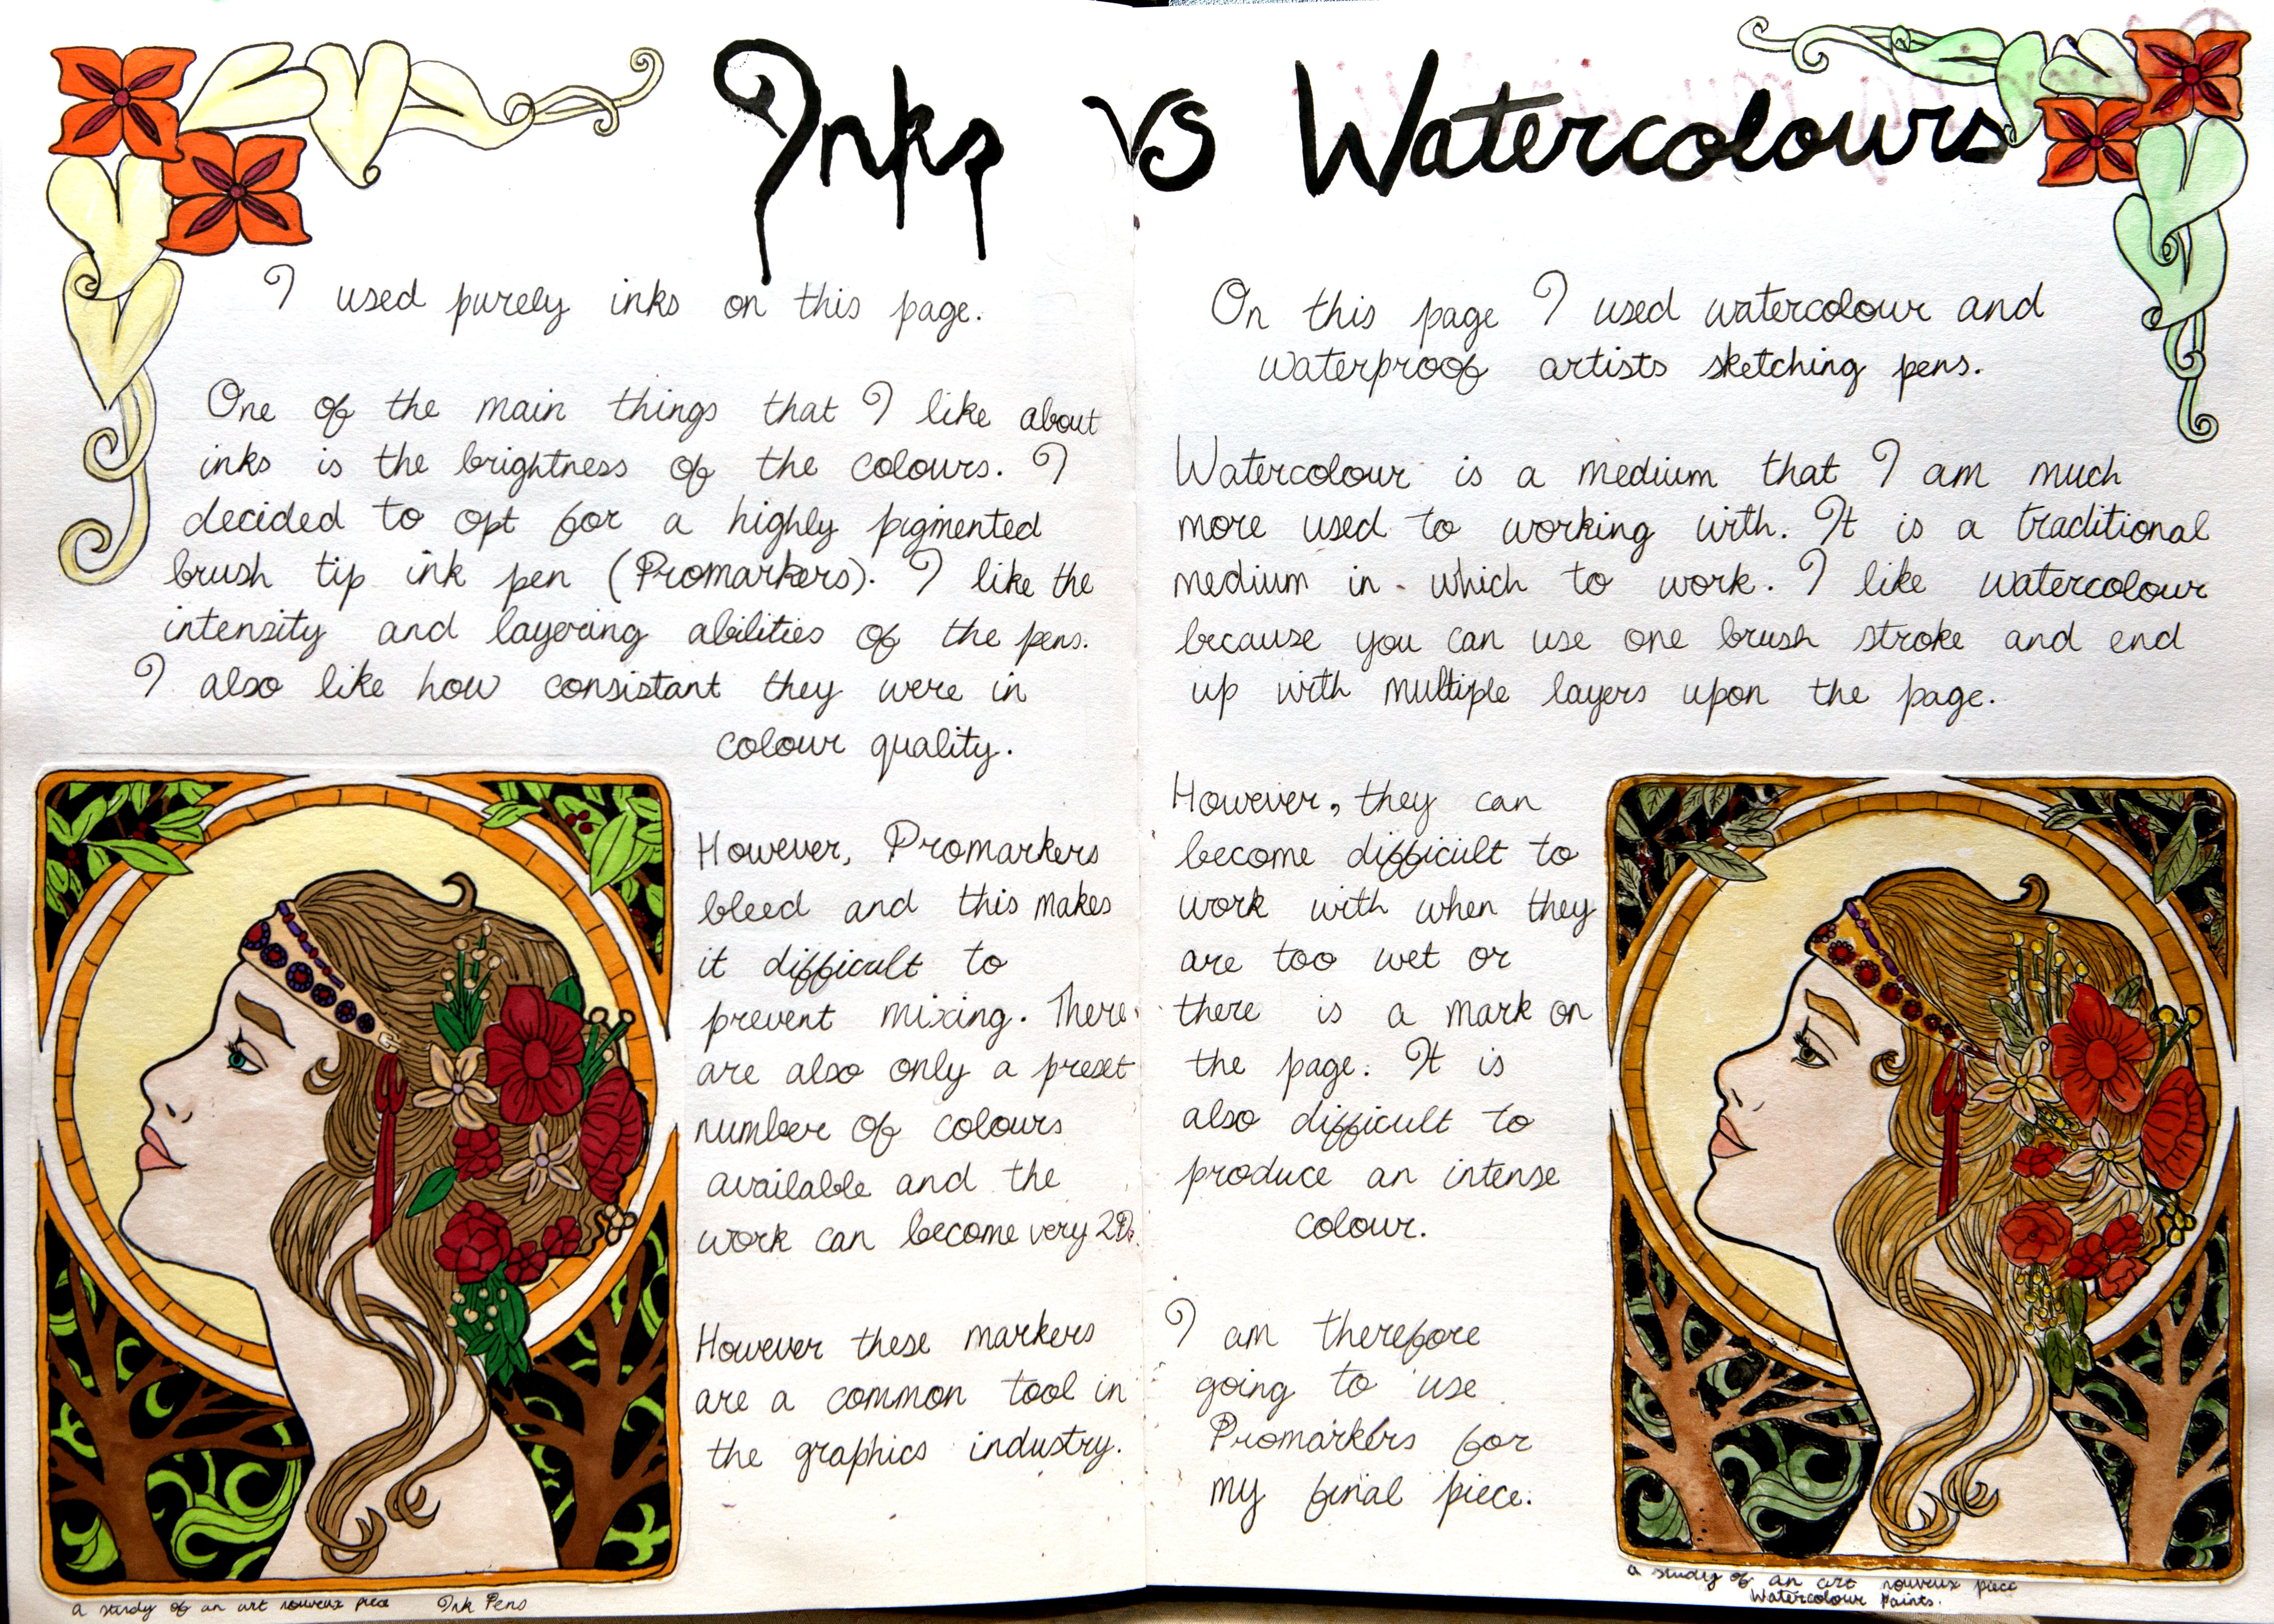 Inks vs Watercolours
I used purely inks on this page.
One of the main things that I like about
inks is the brightness of the colours. I
decided to opt for a highly pigmented
brush tip ink pen (Promarkers). I like the
intensity and layering abilities of the pens.
I also like how consistant they were in
colour quality.
However, Promarkers
bleed and this makes
it difficult to
prevent mixing. There
are also only a preset
number of colours
available and the
work can become very 2D.
However these markers
are a common tool in
the graphics industry.
a study of an art nouveux piece Ink Pens
On this page I used watercolour and
waterproof artists sketching pens.
Watercolour is a medium that I am much
more used to working with. It is a traditional
medium in which to work. I like watercolour
because you can use one brush stroke and end
up with multiple layers upon the page.
However, they can
become difficult to
work with when they
are too wet or
there is a mark on
the page. It is
also difficult to
produce an intense
colour.
I am therefore
going to use
Promarkers for
my final piece.
a study of an art nouveux piece
Watercolour paints.